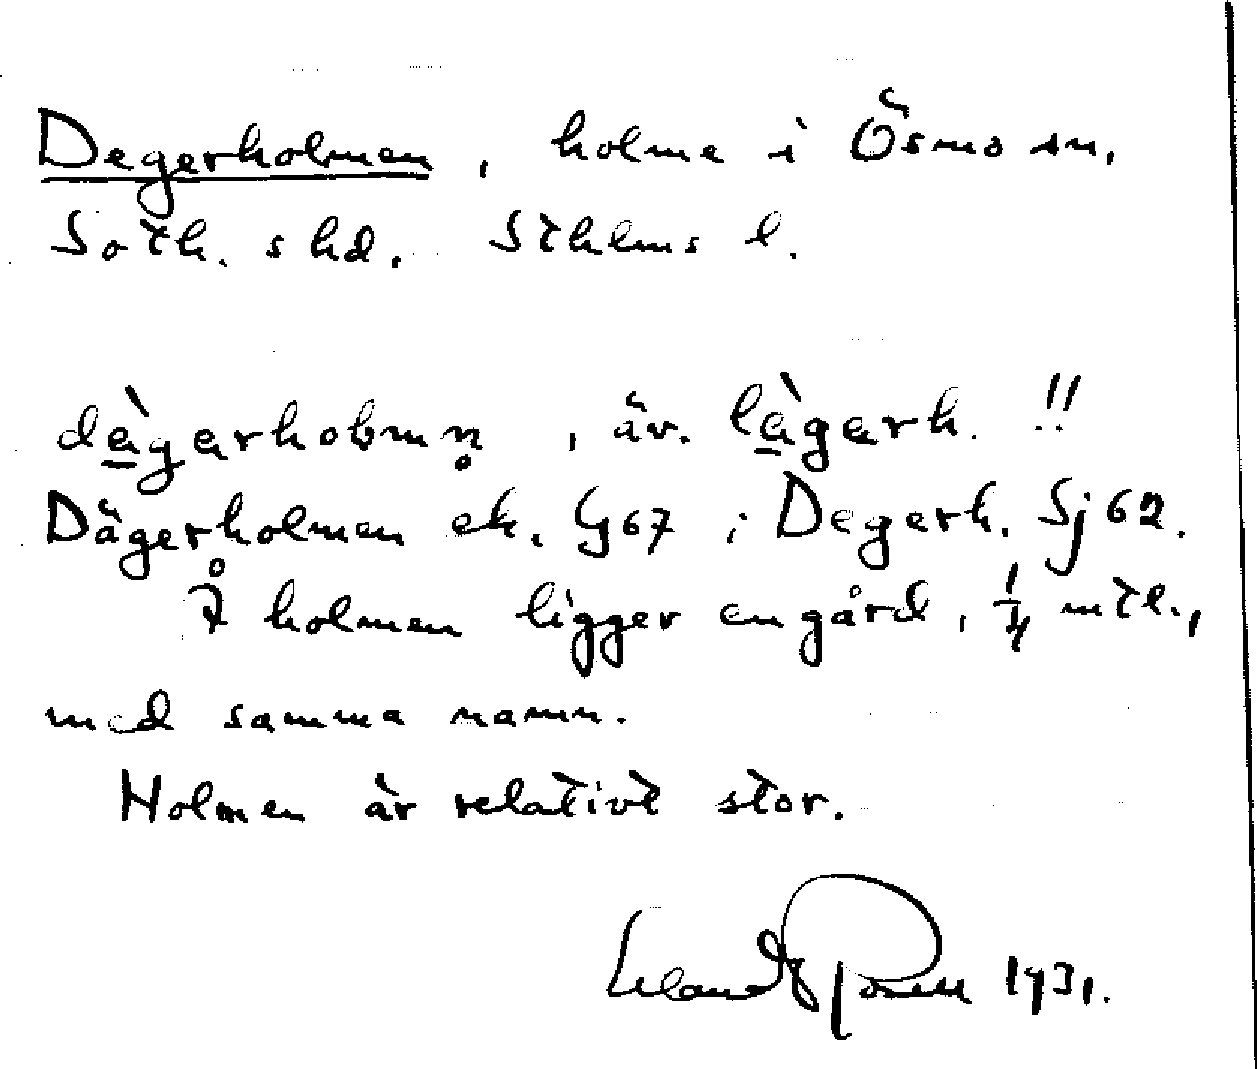 Degerholmen, holme i Ösmo sn,
Soth. s hd. Sthlms l.
dègerholmn̥, äv. lègerh. !!
Dägerholmen ek. G67; Degerh. Sj62.
Å holmen ligger en gård, 1/4 mtl.,
med samma namn.
Holmen är relativt stor.
Rosell 1931.